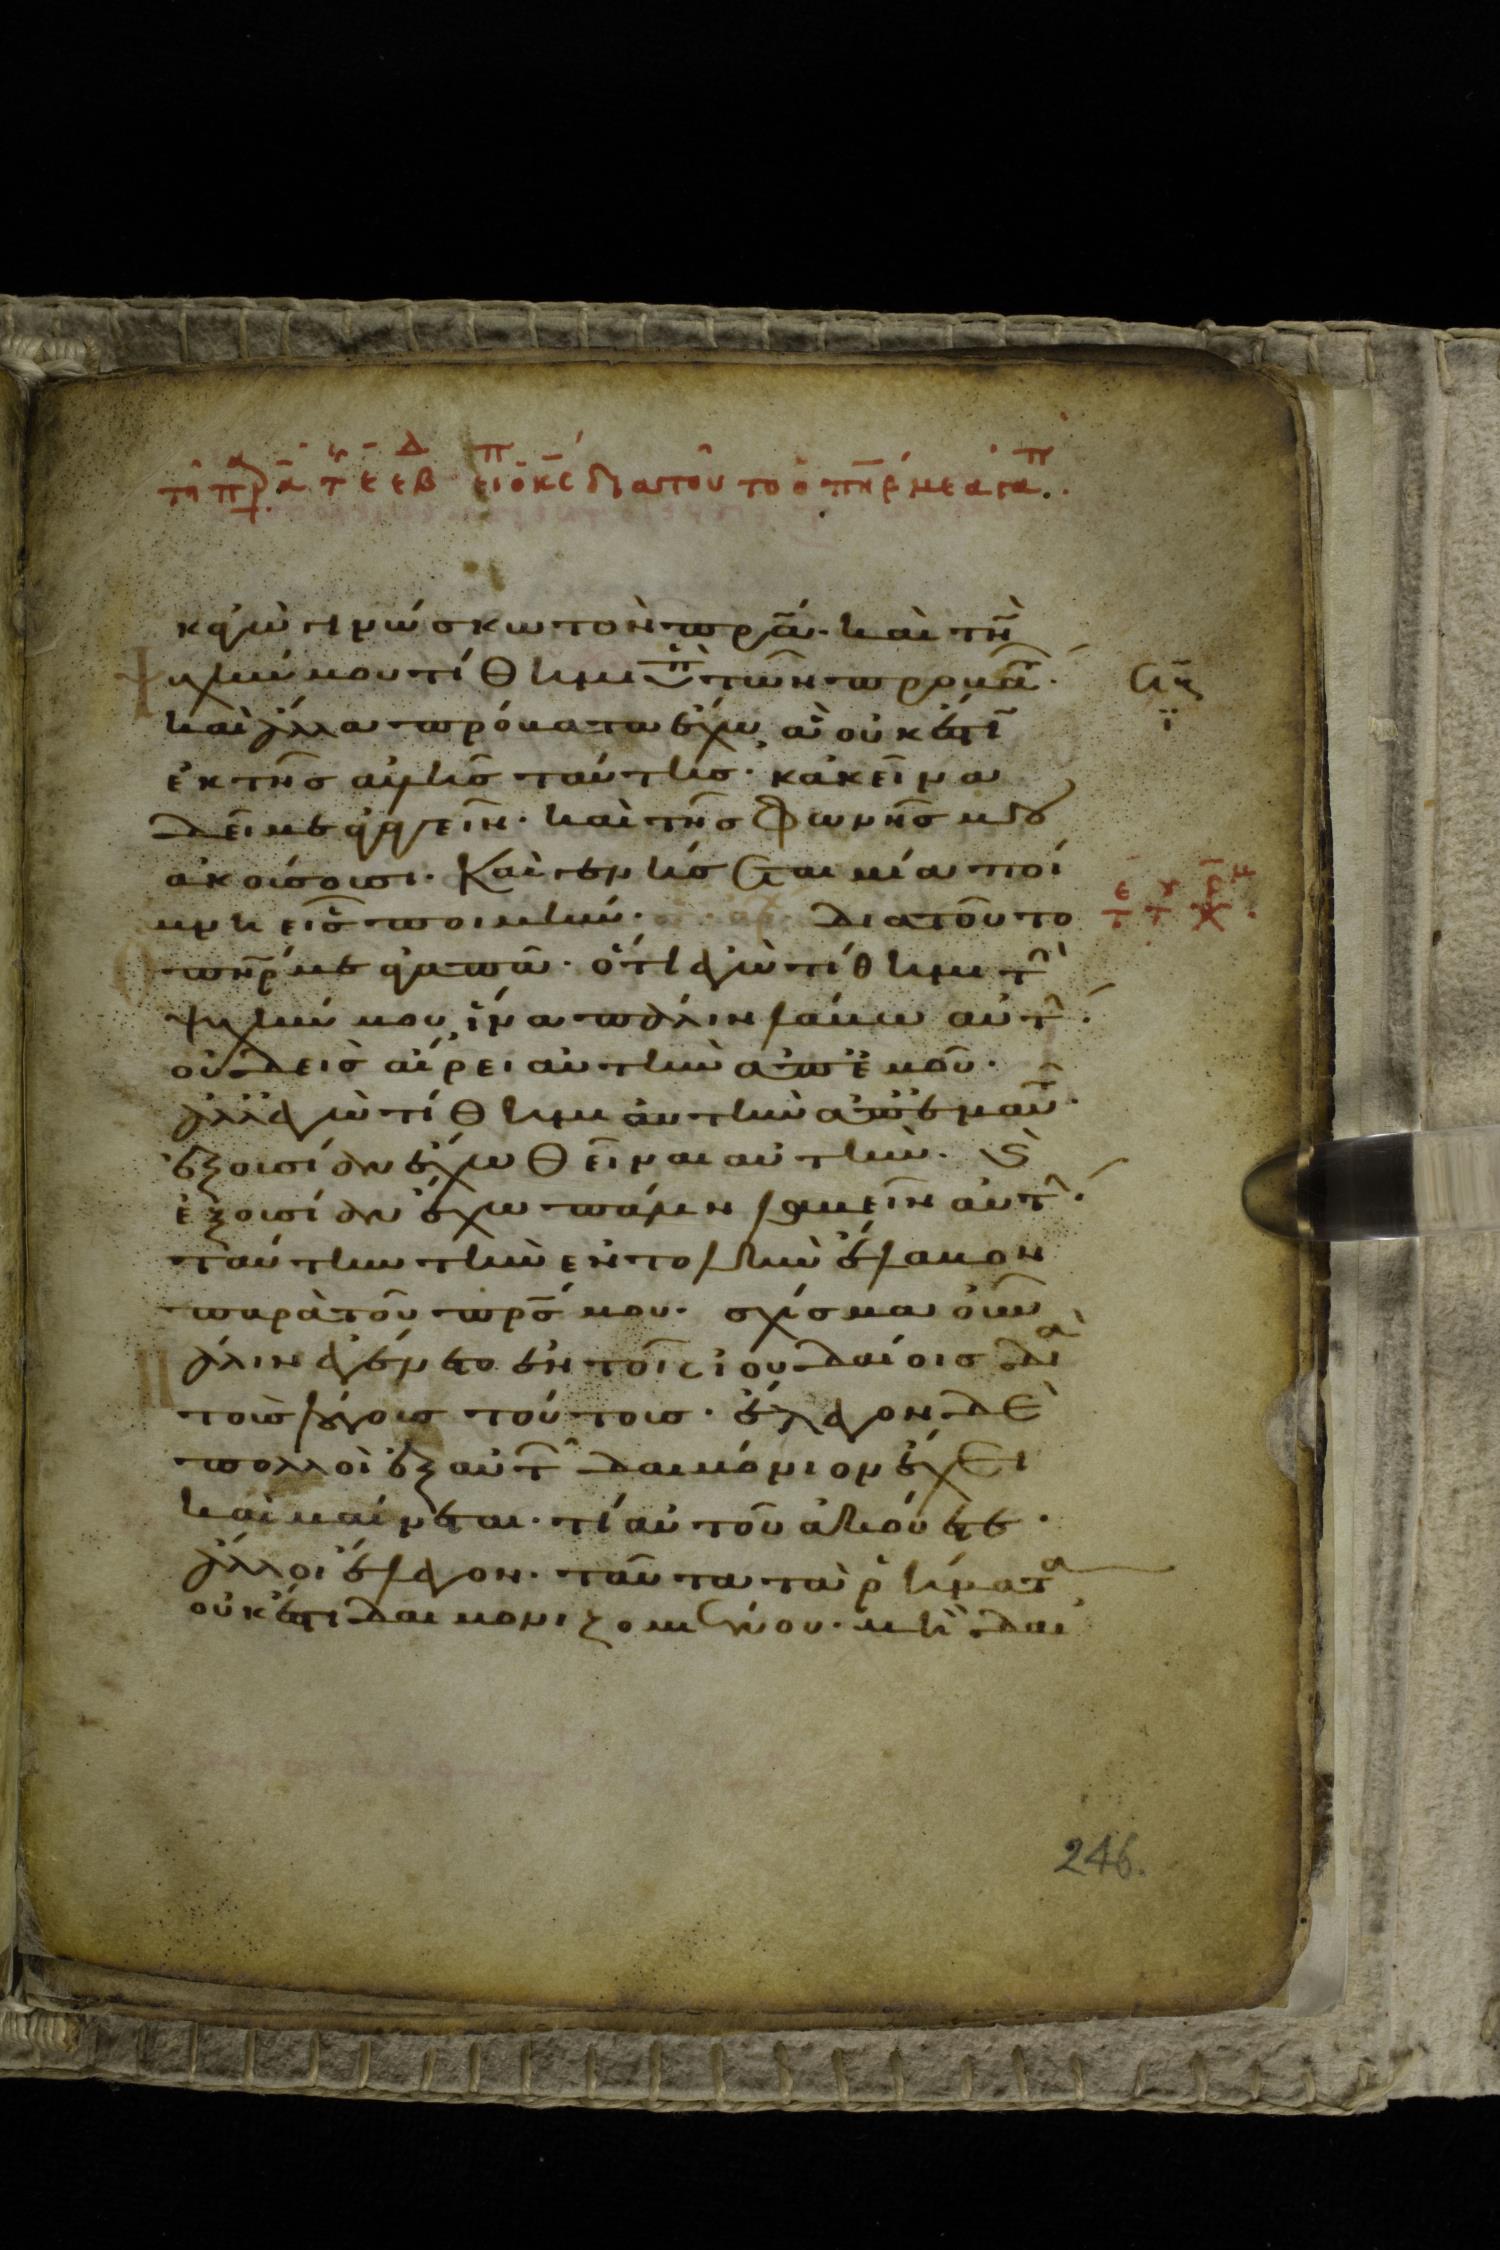 τη πρα τ ε εβ ει ο κς δια τουτο ο πηρ με αγα
κἀγὼ γινώσκω τὸν πρᾶ· καὶ τὴν
ψυχήν μου τίθημι ὑπὲρ τῶν προμα·
καὶ ἄλλα πρόματα ἔχω, ἃ οὐκ ἔστιν
ἐκ τῆς αὐλῆς ταύτης· κἀκεῖνα
δεῖ με ἀγαγεῖν· καὶ τῆς φωνῆς μου
ἀκούσουσι· Καὶ γενήσεται μία ποί
μνη εἷς ποιμήν· διὰ τοῦτο
ὁ πηρ με ἀγαπᾶ· ὅτι ἐγὼ τίθημι τὴν
ψυχήν μου, ἵνα πάλιν λάβω αὐτήν·
οὐδεὶς αἴρει αὐτὴν ἀπ' ἐμοῦ·
ἀλλ' ἐγὼ τίθημι αὐτὴν ἀπ' ἐμαυτοῦ·
ἐξουσίαν ἔχω θεῖναι αὐτήν· καὶ
ἐξουσίαν ἔχω πάλιν λαβεῖν αὐτήν·
ταύτην τὴν ἐντολὴν ἔλαβον
παρὰ τοῦ πρς μου· σχίσμα οὖν
πάλιν ἐγένετο ἐν τοῖς ἰουδαίοις διὰ
τοὺς λόγους τούτους· ἔλεγον δὲ
πολλοὶ ἐξ αὐτῶν δαιμόνιον ἔχει
καὶ μαίνεται· τί αὐτοῦ ἀκούετε·
ἄλλοι ἔλεγον· ταῦτα τὰ ῥήματα
οὐκ ἔστι δαιμονιζομένου· μὴ δαι
246.